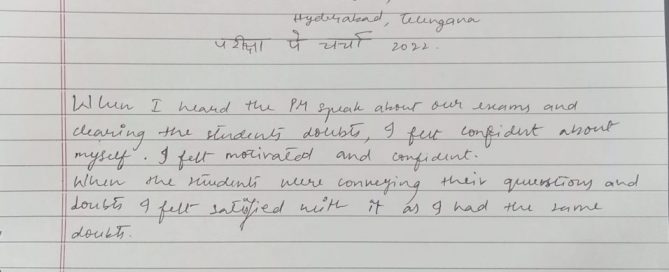 Hyderabad, Telengana
परीक्षा पे चर्चा 2022.
When I heard the PM speak about our exams and
clearing the students doubts, I felt confident about
myself. I felt motivated and confident.
When the students were conveying their questions and
doubts I felt satisfied with it as I had the same
doubts.